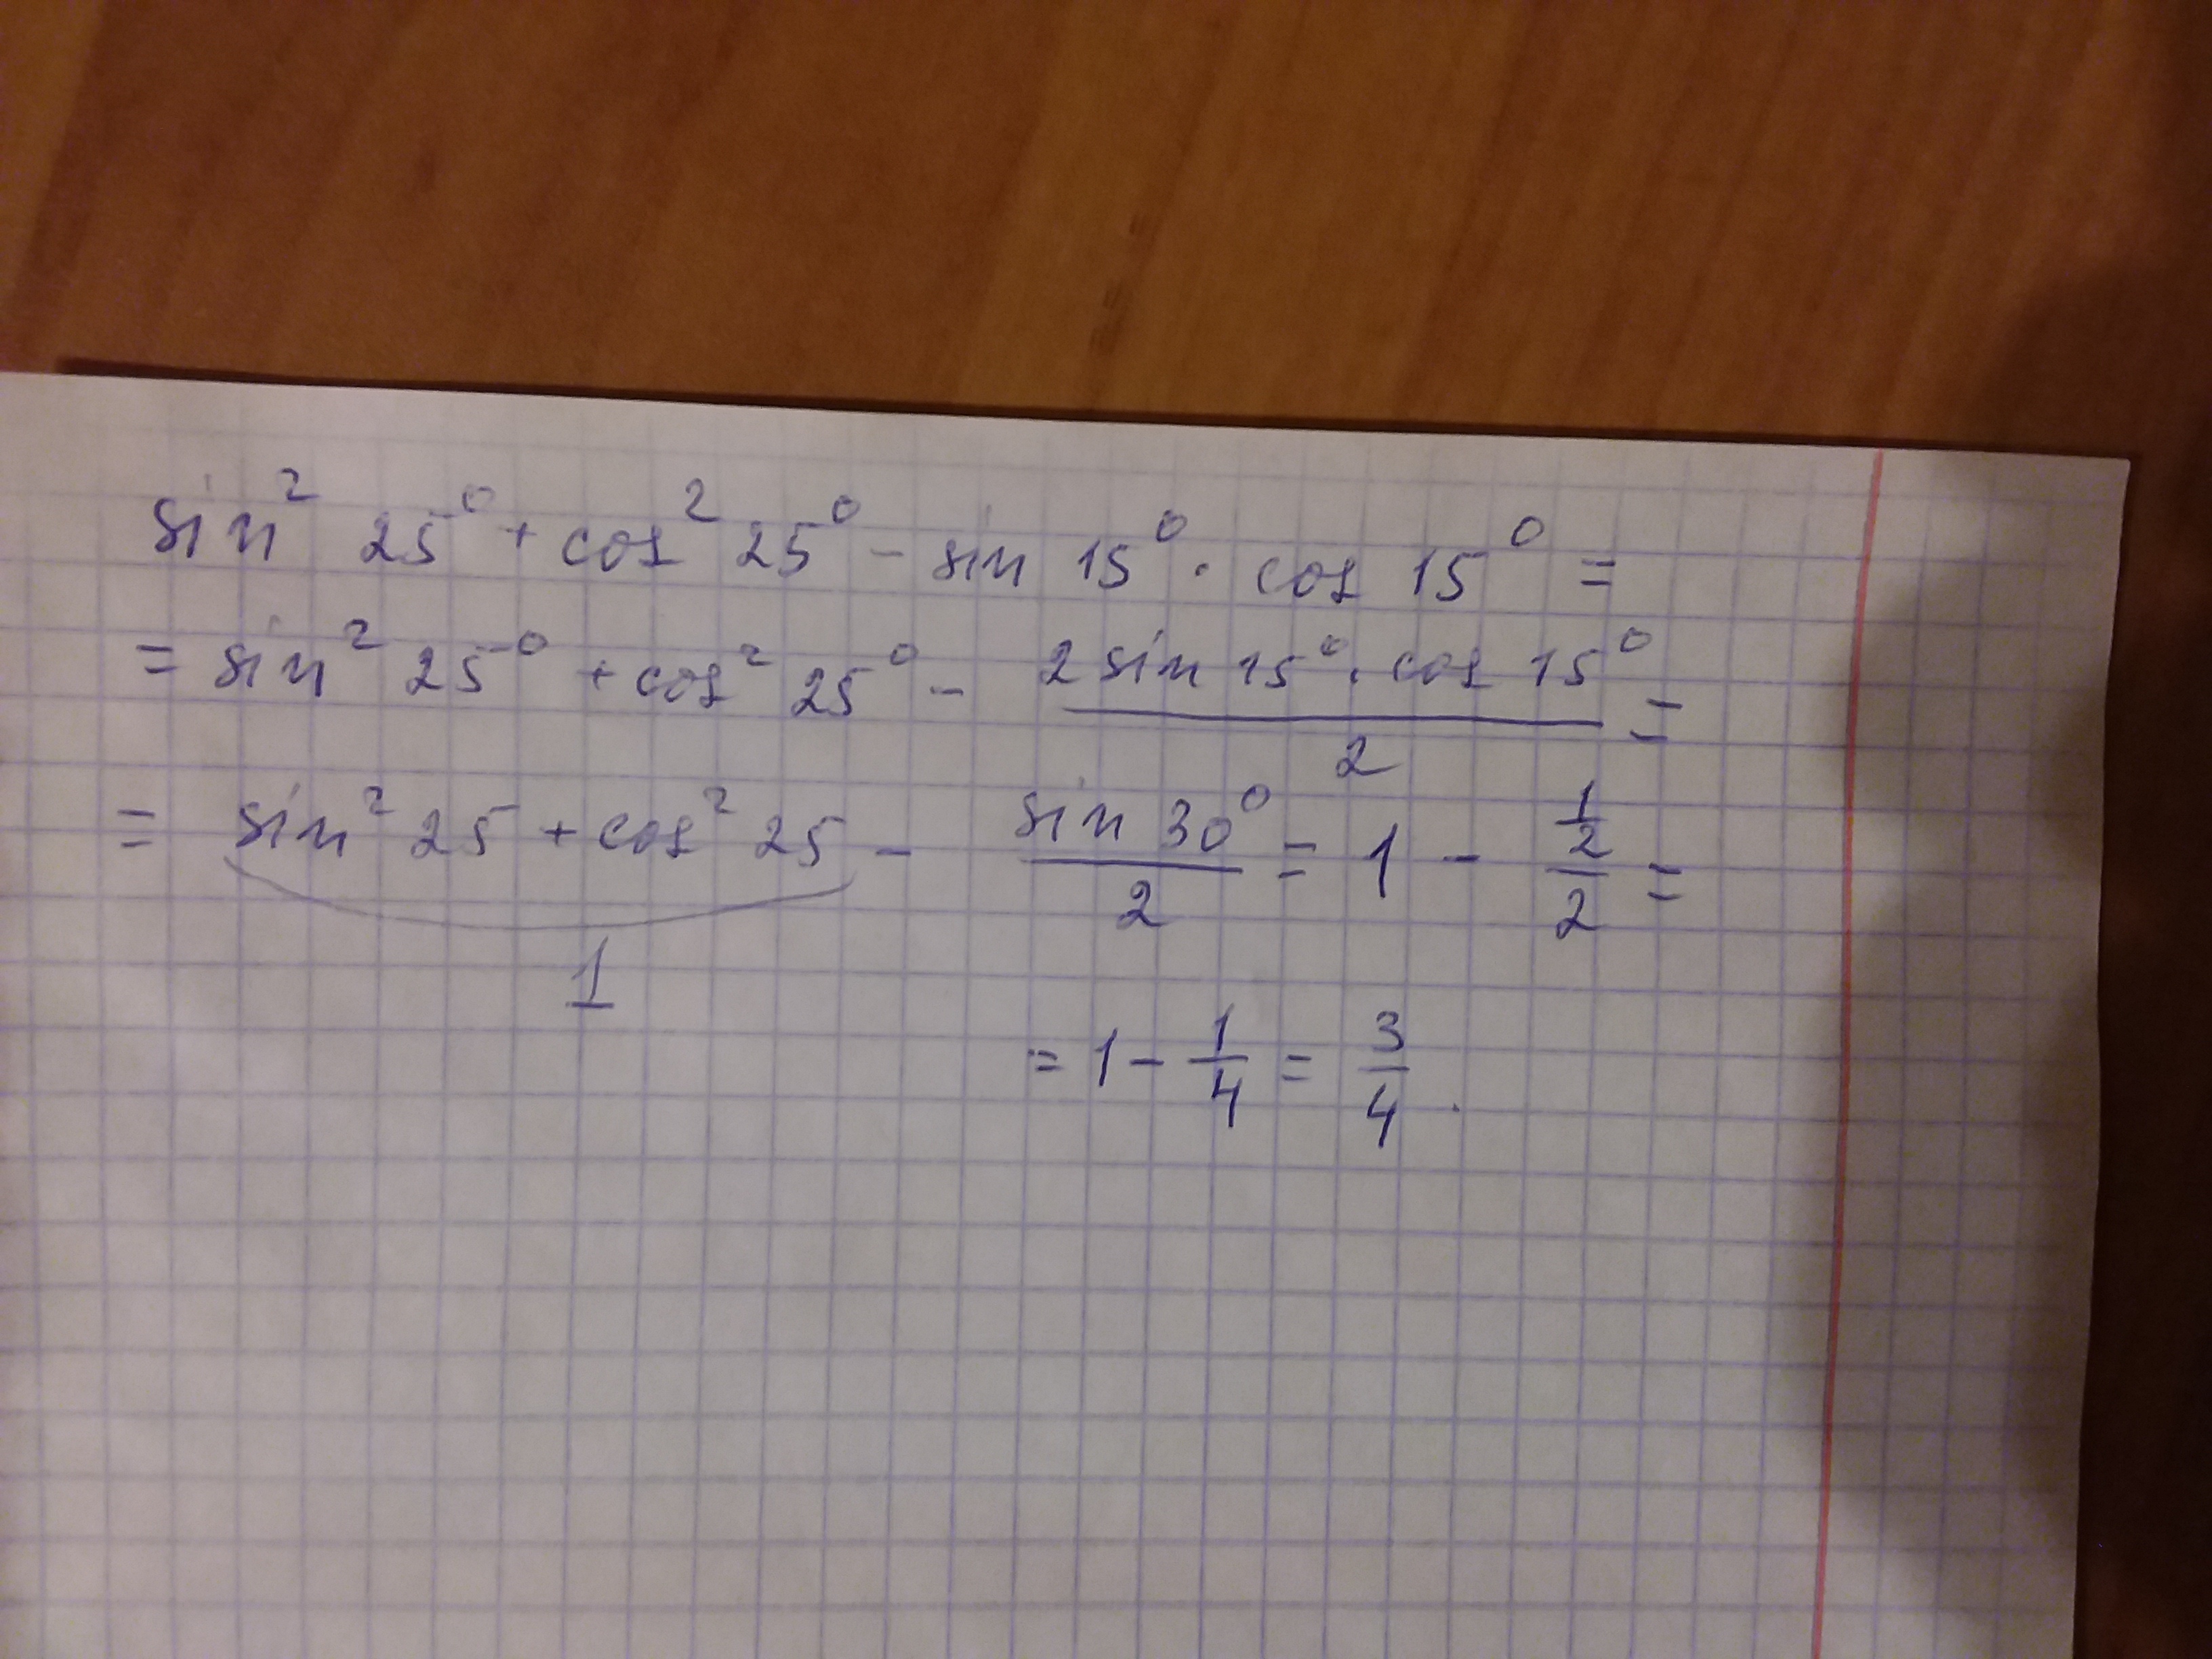 sin² 25° + cos² 25° - sin 15° · cos 15° =
= sin² 25° + cos² 25° - (2 sin 15° · cos 15°)/2 =
= sin² 25 + cos² 25 - (sin 30°)/2 = 1 - (1/2)/2 =
1
= 1 - 1/4 = 3/4.